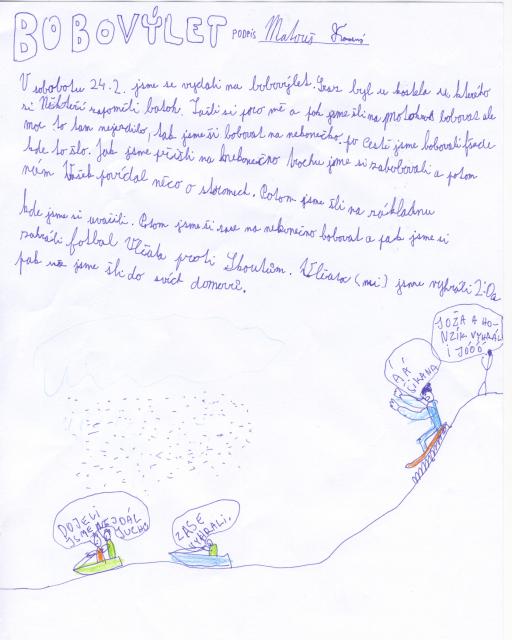 BOBOVÝLET PODPIS Matouš
V sobobotu 24.2. jsme se vydali na bobovýlet. Sraz byl u kostela ze kterého
si Někteří zapoměli batoh. Zašli si pro mě a pak jsme šli na protokno bobovat ale
moc to tam nejezdilo, tak jsme šli bobovat na nekonečko. po Cestě jsme bobovali všude
kde to šlo. Jak jsme přišli na nekonečno trochu jsme si zabobovali a potom
nám Vašek povídal něco o stromech. Potom jsme šli na základnu
kde jsme si uvařili. Potom jsme šli zase na nekonečno bobovat a pak jsme si
zahráli fotbal Vlčata proti Skautům. Vlčata (mi) jsme vyhráli 2:0
pak jsme šli do svích domovů.
JOŽA A HO-
NZÍK VYHRÁL
I JÓÓÓ
Á Á
ŠIKANA
DOJELI
JSME NEJDÁL
JUCHŮ
ZASE
VYHRÁLI.